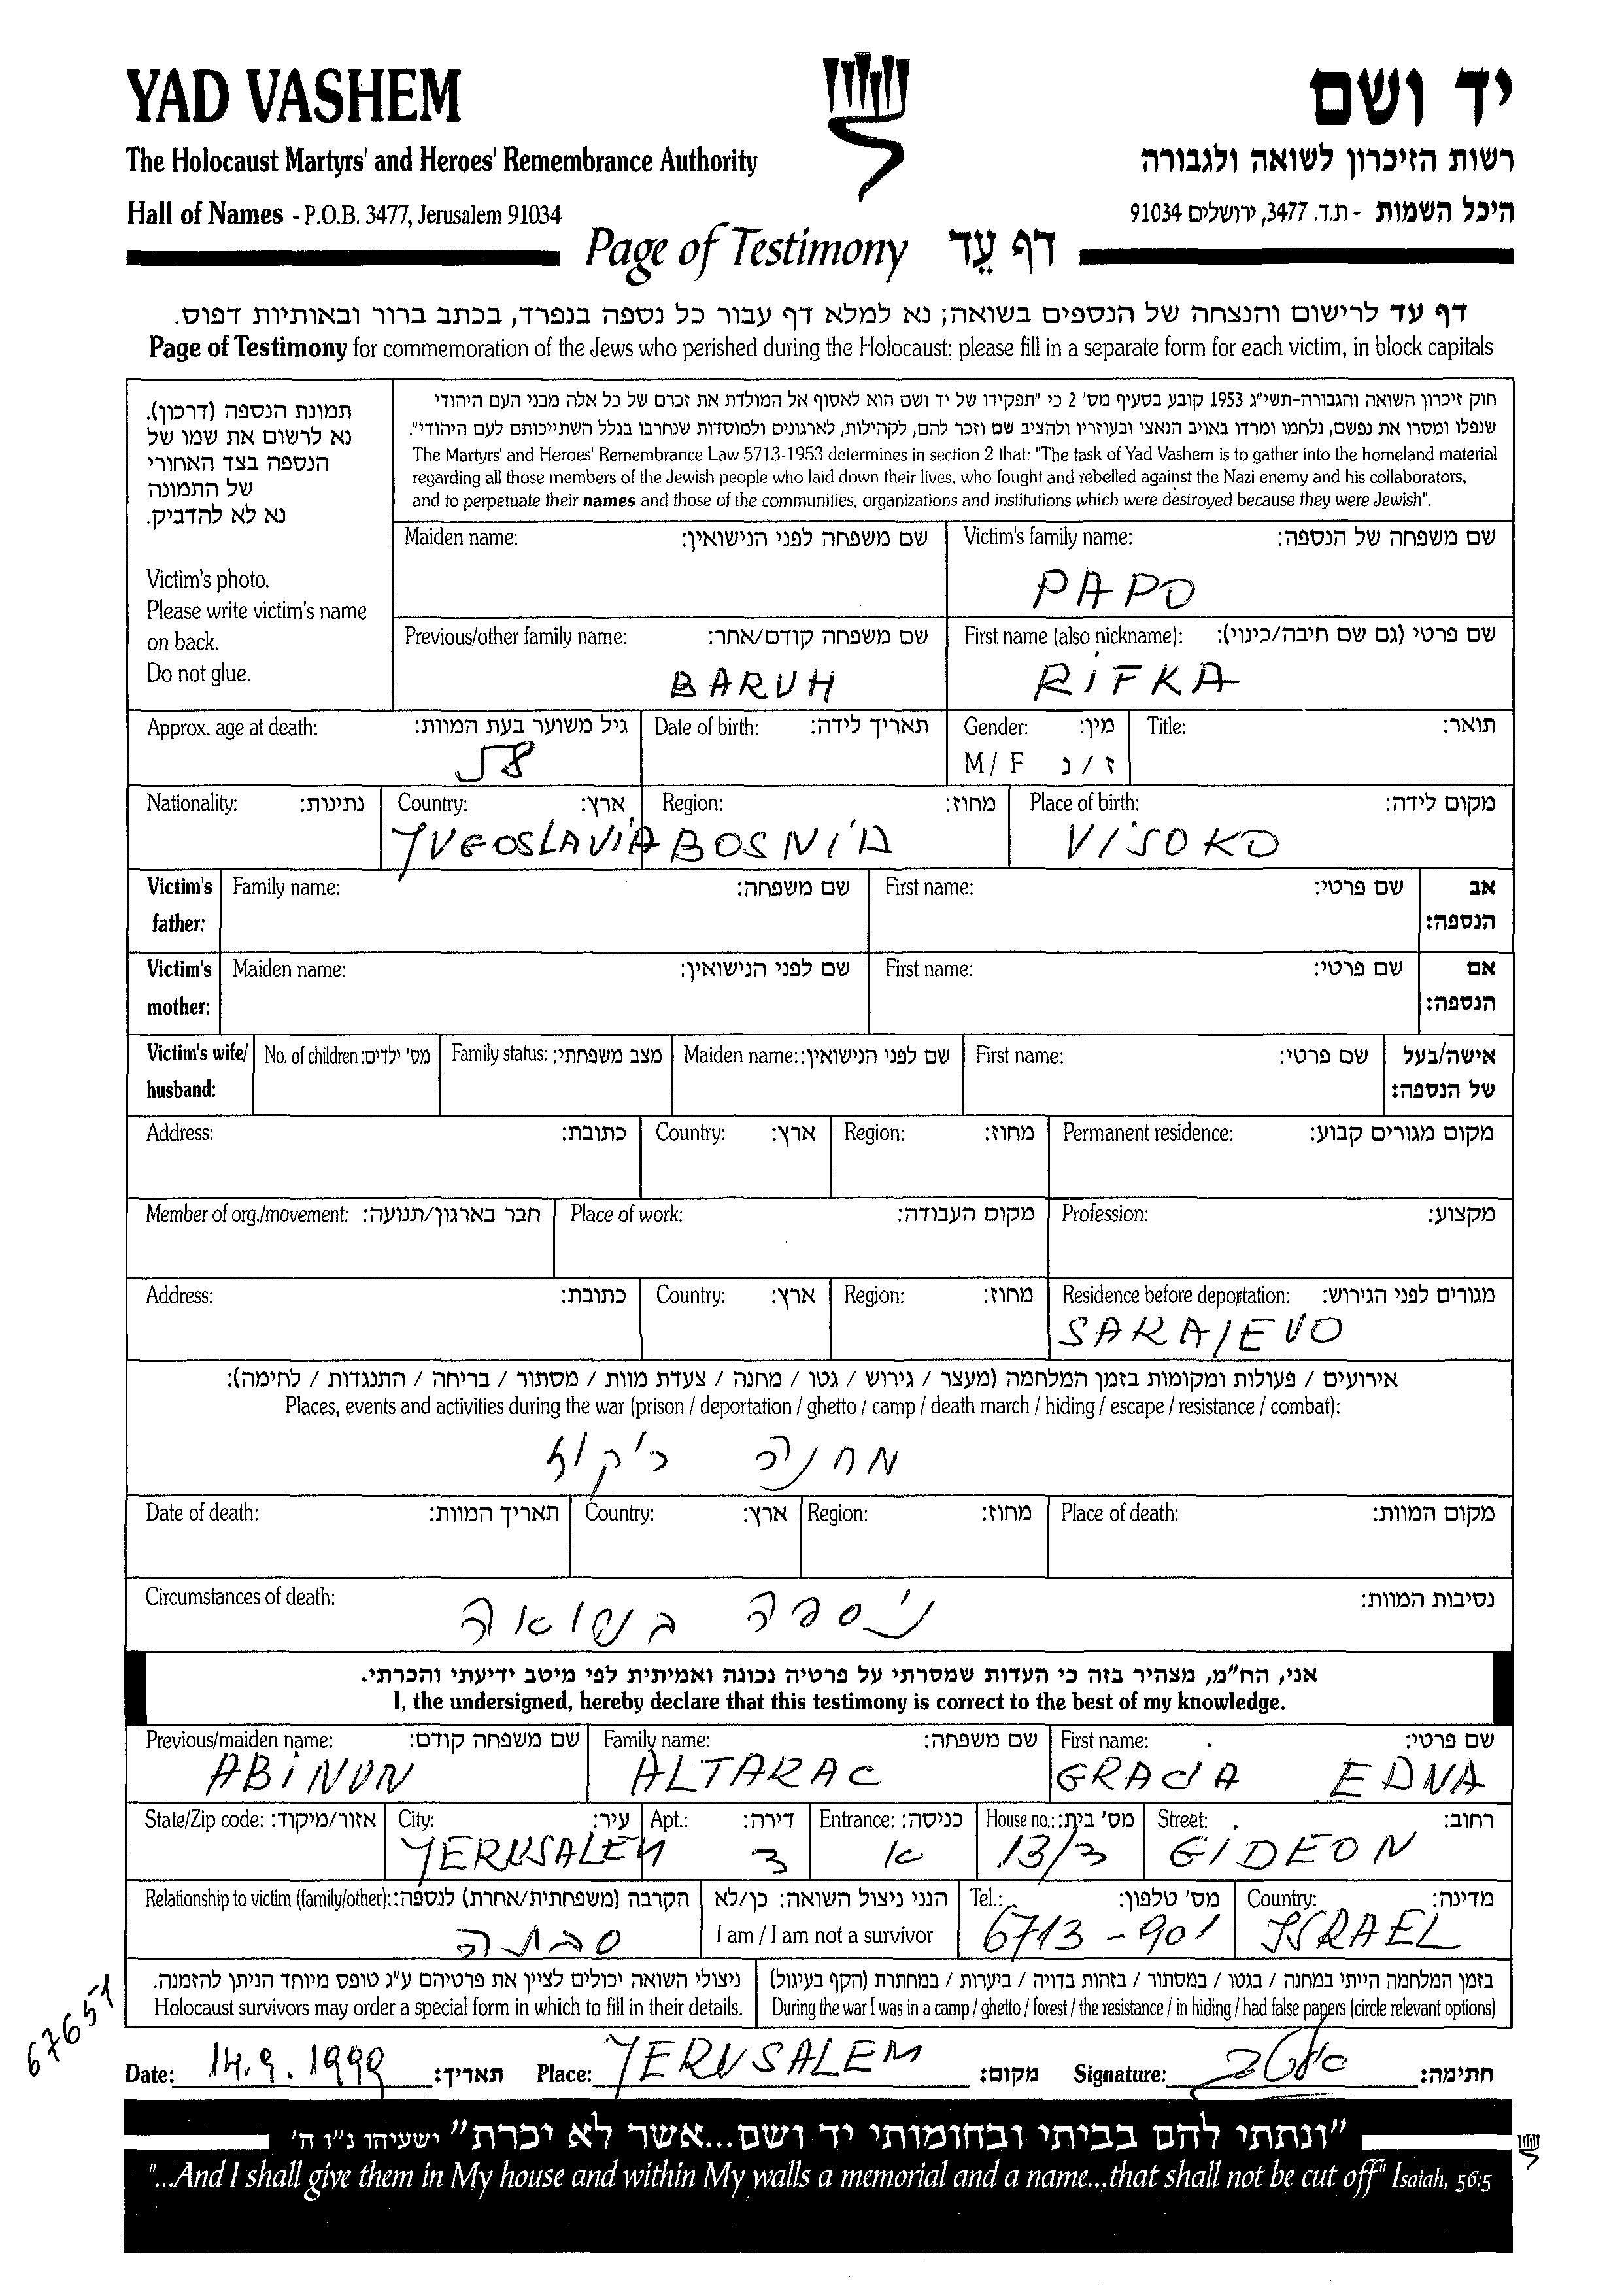 YAD VASHEM
יד ושם
The Holocaust Martyrs' and Heroes' Remembrance Authority
רשות הזיכרון לשואה ולגבורה
Hall of Names - P.O.B. 3477, Jerusalem 91034
היכל השמות - ת.ד. 3477, ירושלים 91034
Page of Testimony דף עֵד
דף עד לרישום והנצחה של הנספים בשואה; נא למלא דף עבור כל נספה בנפרד, בכתב ברור ובאותיות דפוס.
Page of Testimony for commemoration of the Jews who perished during the Holocaust; please fill in a separate form for each victim, in block capitals
תמונת הנספה (דרכון).
נא לרשום את שמו של
הנספה בצד האחורי
של התמונה
נא לא להדביק.
Victim's photo.
Please write victim's name
on back.
Do not glue.
חוק זיכרון השואה והגבורה-תשי"ג 1953 קובע בסעיף מס' 2 כי "תפקידו של יד ושם הוא לאסוף אל המולדת את זכרם של כל אלה מבני העם היהודי
שנפלו ומסרו את נפשם, נלחמו ומרדו באויב הנאצי ובעוזריו ולהציב שם וזכר להם, לקהילות, לארגונים ולמוסדות שנחרבו בגלל השתייכותם לעם היהודי".
The Martyrs' and Heroes' Remembrance Law 5713-1953 determines in section 2 that: "The task of Yad Vashem is to gather into the homeland material
regarding all those members of the Jewish people who laid down their lives, who fought and rebelled against the Nazi enemy and his collaborators,
and to perpetuate their names and those of the communities, organizations and institutions which were destroyed because they were Jewish".
Maiden name: שם משפחה לפני הנישואין:
Victim's family name: שם משפחה של הנספה:
PAPO
Previous/other family name: שם משפחה קודם/אחר:
BARUH
First name (also nickname): שם פרטי (גם שם חיבה/כינוי):
RIFKA
Approx. age at death: גיל משוער בעת המוות:
58
Date of birth: תאריך לידה:
Gender: מין:
M / F ז / נ
Title: תואר:
Nationality: נתינות:
Country: ארץ:
YUGOSLAVIA
Region: מחוז:
BOSNIA
Place of birth: מקום לידה:
VISOKO
Victim's father:
Family name: שם משפחה:
First name: שם פרטי:
אב הנספה:
Victim's mother:
Maiden name: שם לפני הנישואין:
First name: שם פרטי:
אם הנספה:
Victim's wife/ husband:
No. of children: מס' ילדים:
Family status: מצב משפחתי:
Maiden name: שם לפני הנישואין:
First name: שם פרטי:
אישה/בעל של הנספה:
Address: כתובת:
Country: ארץ:
Region: מחוז:
Permanent residence: מקום מגורים קבוע:
Member of org./movement: חבר בארגון/תנועה:
Place of work: מקום העבודה:
Profession: מקצוע:
Address: כתובת:
Country: ארץ:
Region: מחוז:
Residence before deportation: מגורים לפני הגירוש:
SARAJEVO
אירועים / פעולות ומקומות בזמן המלחמה (מעצר / גירוש / גטו / מחנה / צעדת מוות / מסתור / בריחה / התנגדות / לחימה):
Places, events and activities during the war (prison / deportation / ghetto / camp / death march / hiding / escape / resistance / combat):
מחנה ריכוז
Date of death: תאריך המוות:
Country: ארץ:
Region: מחוז:
Place of death: מקום המוות:
Circumstances of death: נסיבות המוות:
ניספה בשואה
אני, הח"מ, מצהיר בזה כי העדות שמסרתי על פרטיה נכונה ואמיתית לפי מיטב ידיעתי והכרתי.
I, the undersigned, hereby declare that this testimony is correct to the best of my knowledge.
Previous/maiden name: שם משפחה קודם:
ABINUN
Family name: שם משפחה:
ALTARAC
First name: שם פרטי:
GRACIA EDNA
State/Zip code: אזור/מיקוד:
City: עיר:
YERUSALEM
Apt.: דירה:
3
Entrance: כניסה:
א
House no.: מס' בית:
13/3
Street: רחוב:
GIDEON
Relationship to victim (family/other): הקרבה (משפחתית/אחרת) לנספה:
סבתה
הנני ניצול השואה: כן/לא
I am / I am not a survivor
Tel.: מס' טלפון:
6713-901
Country: מדינה:
ISRAEL
ניצולי השואה יכולים לציין את פרטיהם ע"ג טופס מיוחד הניתן להזמנה.
Holocaust survivors may order a special form in which to fill in their details.
בזמן המלחמה הייתי במחנה / בגטו / במסתור / בזהות בדויה / ביערות / במחתרת (הקף בעיגול)
During the war I was in a camp / ghetto / forest / the resistance / in hiding / had false papers (circle relevant options)
67651
Date: 14.9.1999 תאריך:
Place: YERUSALEM מקום:
Signature: חתימה:
"ונתתי להם בביתי ובחומותי יד ושם...אשר לא יכרת" ישעיהו נ"ו ה'
"...And I shall give them in My house and within My walls a memorial and a name...that shall not be cut off" Isaiah, 56:5